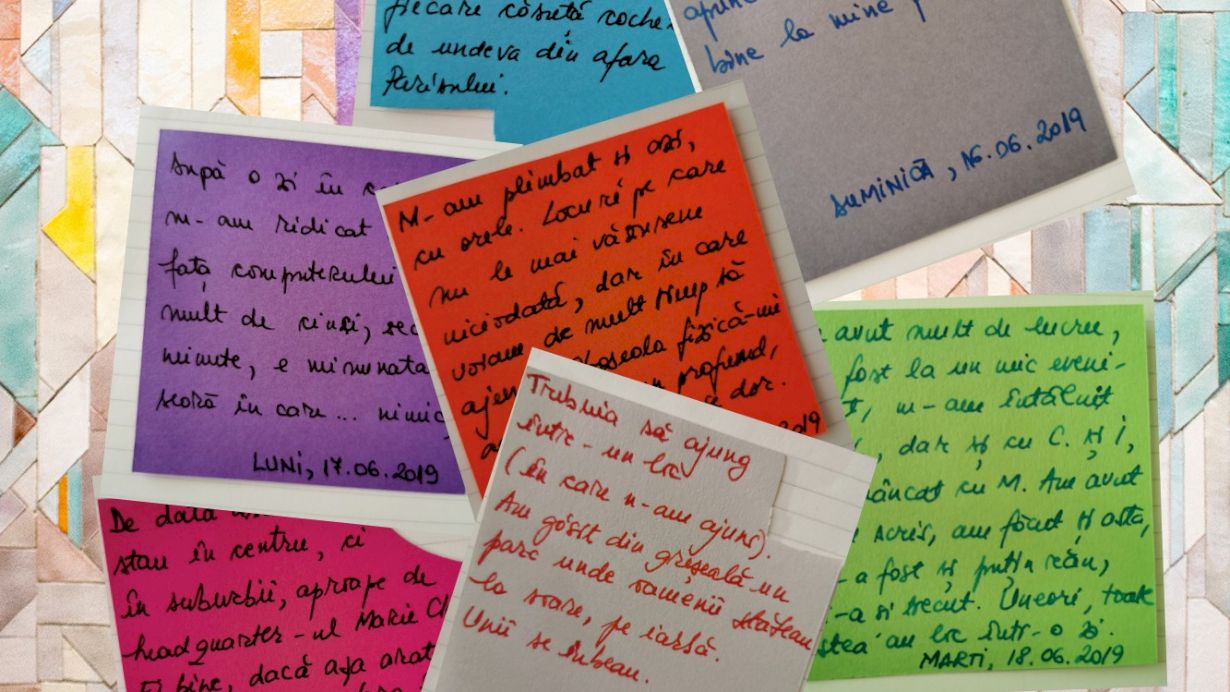 fiecare căsuță coche
de undeva din afara
Parisului.
apune
bine la mine
DUMINICĂ, 16.06.2019
După o zi în
m-am ridicat
fața computerului
mult de cinci,
minute, e minunata
seară în care... nimic
LUNI, 17.06.2019
M-am plimbat și azi,
cu orele. Locuri pe care
nu le mai văzusem
niciodată, dar în care
voiam de mult timp să
ajung oboseala fizică-mi
profund,
dor.
2019
Trebuia să ajung
într-un loc
(în care n-am ajuns).
Am găsit din greșeală un
parc unde oamenii stăteau
la soare, pe iarbă.
Unii se iubeau.
avut mult de lucru,
fost la un mic eveni-
m-am întâlnit
, dar și cu C. și I,
mâncat cu M. Am avut
scris, am făcut și asta,
-a fost și puțin rău,
i-a și trecut. Uneori, toate
astea au loc într-o zi.
MARȚI, 18.06.2019
De data
stau în centru, ci
în suburbii, aproape de
headquarter-ul Marie Cl
E bine, dacă așa arat